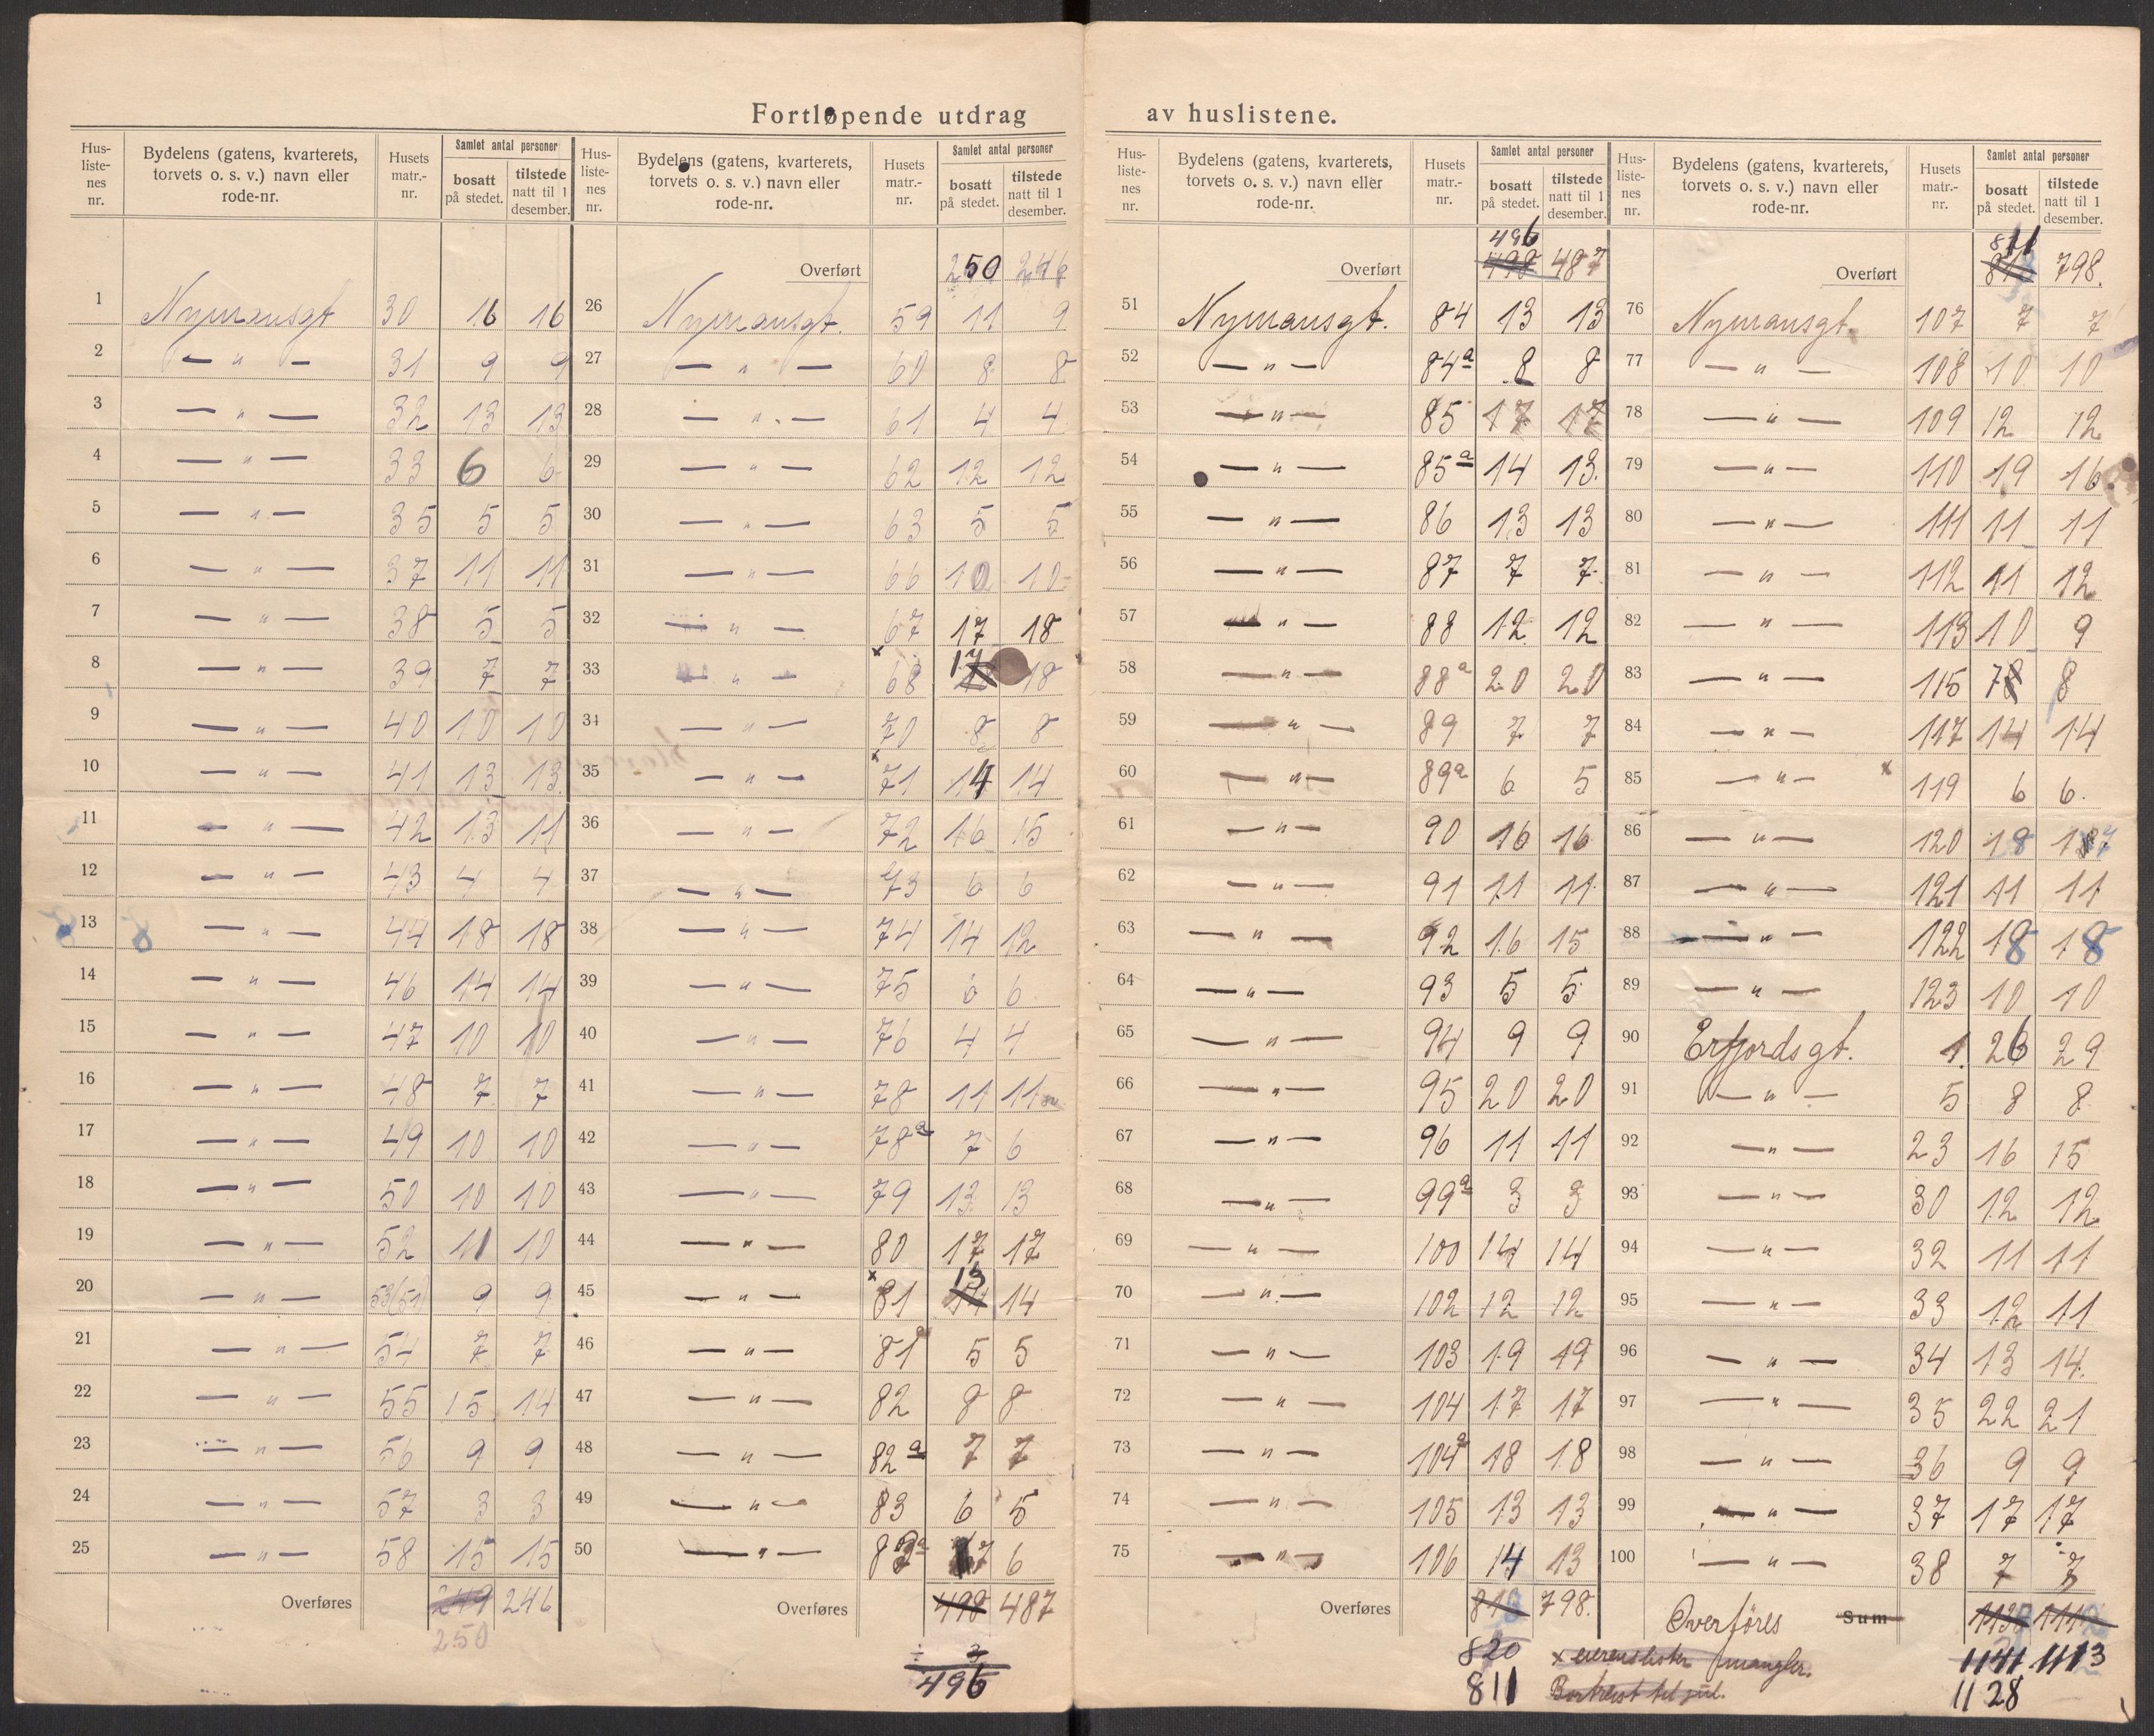 Fortløpende utdrag av huslistene.
Hus-liste-nes nr. | Bydelens (gatens, kvarterets, torvets o. s. v.) navn eller rode-nr. | Husets matr.-nr. | Samlet antal personer | bosatt på stedet. | tilstede natt til 1 desember.
1 Nymansgt 30 16 16
2 — " — 31 9 9
3 — " — 32 13 13
4 — " — 33 6 6
5 — " — 35 5 5
6 — " — 37 11 11
7 — " — 38 5 5
8 — " — 39 7 7
9 — " — 40 10 10
10 — " — 41 13 13
11 — " — 42 13 11
12 — " — 43 4 4
13 — " — 44 18 18
14 — " — 46 14 14
15 — " — 47 10 10
16 — " — 48 7 7
17 — " — 49 10 10
18 — " — 50 10 10
19 — " — 52 11 10
20 — " — 53(51) 9 9
21 — " — 54 7 7
22 — " — 55 15 14
23 — " — 56 9 9
24 — " — 57 3 3
25 — " — 58 15 15
Overføres 249 246
250
Hus-liste-nes nr. | Bydelens (gatens, kvarterets, torvets o. s. v.) navn eller rode-nr. | Husets matr.-nr. | Samlet antal personer | bosatt på stedet. | tilstede natt til 1 desember.
Overført 250 246
26 Nymansgt. 59 11 9
27 — " — 60 8 8
28 — " — 61 4 4
29 — " — 62 12 12
30 — " — 63 5 5
31 — " — 66 10 10
32 — " — 67 17 18
33 — " — x 68 17 18
34 — " — 70 8 8
35 — " — x 71 14 14
36 — " — 72 16 15
37 — " — 73 6 6
38 — " — 74 14 12
39 — " — 75 6 6
40 — " — 76 4 4
41 — " — 78 11 11
42 — " — 78a 7 6
43 — " — 79 13 13
44 — " — 80 17 17
45 — " — x 81 13 14
46 — " — 81a 5 5
47 — " — 82 8 8
48 — " — 82a 7 7
49 — " — 83 6 5
50 — " — 7 6
Overføres 498 487
496
Hus-liste-nes nr. | Bydelens (gatens, kvarterets, torvets o. s. v.) navn eller rode-nr. | Husets matr.-nr. | Samlet antal personer | bosatt på stedet. | tilstede natt til 1 desember.
496
Overført 498 487
51 Nymansgt. 84 13 13
52 — " — 84a 8 8
53 — " — 85 17 17
54 — " — 85a 14 13
55 — " — 86 13 13
56 — " — 87 7 7
57 — " — 88 12 12
58 — " — 88a 20 20
59 — " — 89 7 7
60 — " — 89a 6 5
61 — " — 90 16 16
62 — " — 91 11 11
63 — " — 92 16 15
64 — " — 93 5 5
65 — " — 94 9 9
66 — " — 95 20 20
67 — " — 96 11 11
68 — " — 99a 3 3
69 — " — 100 14 14
70 — " — 102 12 12
71 — " — 103 19 19
72 — " — 104 17 17
73 — " — 104a 18 18
74 — " — 105 13 13
75 — " — 106 14 13
Overføres 798.
820
811
x eierenslister mangler.
Bortreist til jul.
Hus-liste-nes nr. | Bydelens (gatens, kvarterets, torvets o. s. v.) navn eller rode-nr. | Husets matr.-nr. | Samlet antal personer | bosatt på stedet. | tilstede natt til 1 desember.
811
Overført 798.
76 Nymansgt. 107 7 7
77 — " — 108 10 10
78 — " — 109 12 12
79 — " — 110 19 16
80 — " — 111 11 11
81 — " — 112 11 12
82 — " — 113 10 9
83 — " — 115 7 8
84 — " — 117 14 14
85 — " — x 119 6 6.
86 — " — 120 18 17
87 — " — 121 11 11
88 — " — 122 18 18
89 — " — 123 10 10
90 Erfjordsgt. 1. 26 29
91 — " — 5 8 8
92 — " — 23 16 15
93 — " — 30 12 12
94 — " — 32 11 11
95 — " — 33 12 11
96 — " — 34 13 14.
97 — " — 35 22 21
98 — " — 36 9 9
99 — " — 37 17 17
100 — " — 38 7 7
Overføres Sum
1141 1113
1128